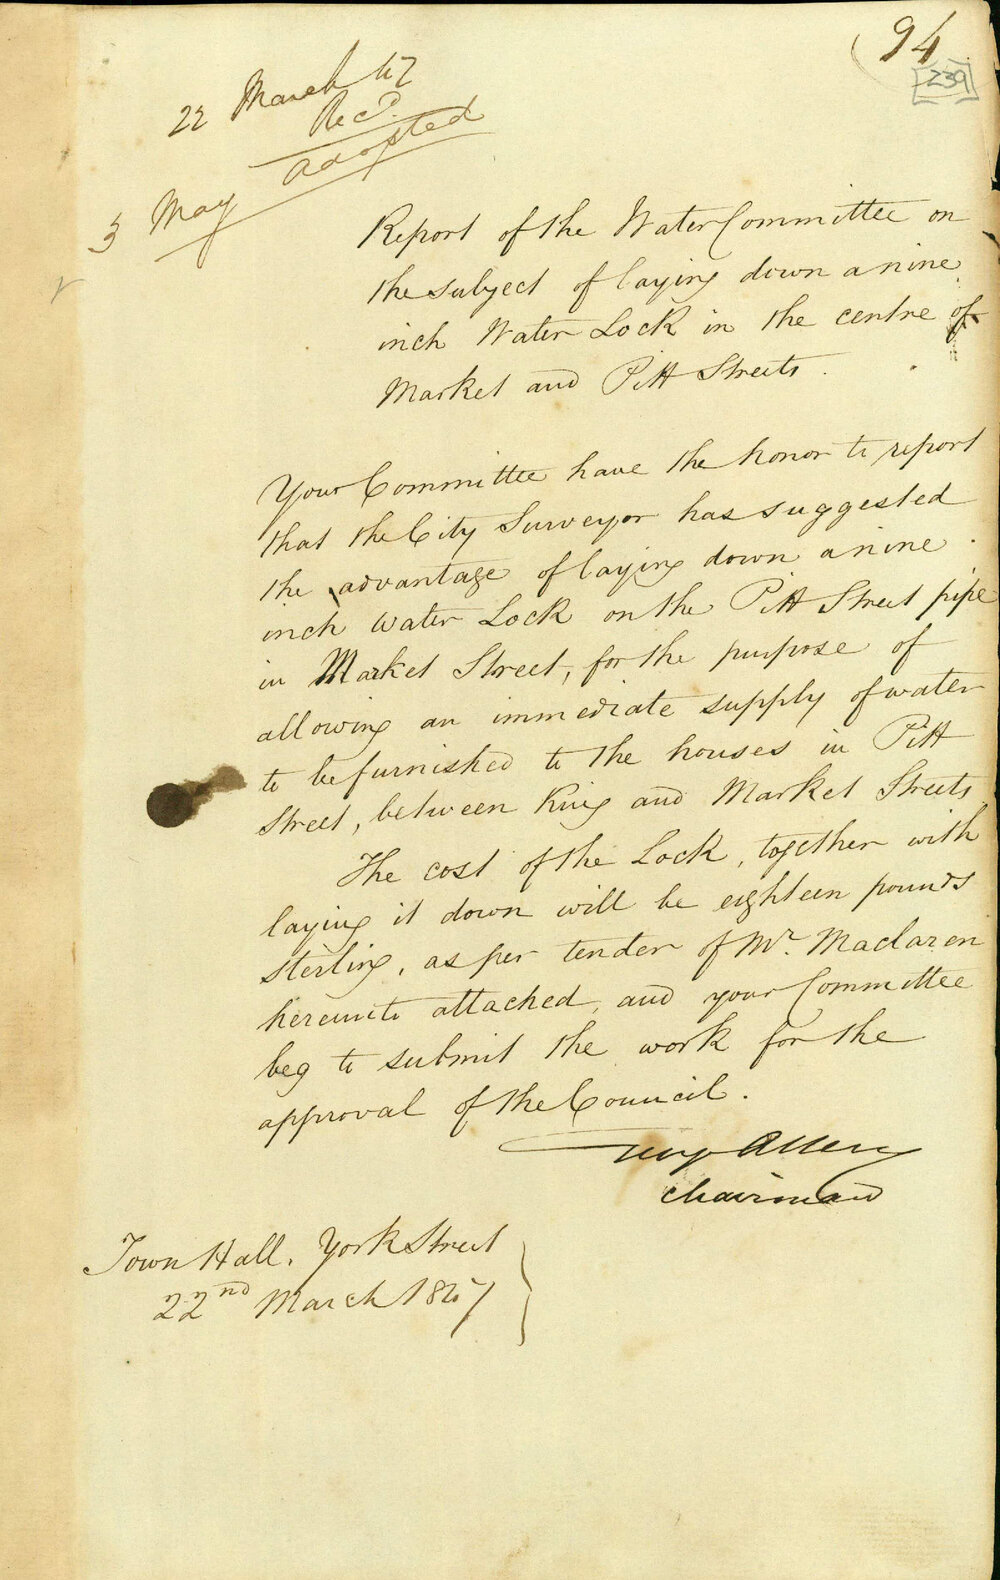 94
239
22 March 47
Recd.
adopted
3 May
Report of the Water Committee on
the subject of laying down a nine
inch Water Lock in the centre of
Market and Pitt Streets.
Your Committee have the honor to report
that the City Surveyor has suggested
the advantage of laying down a nine
inch Water Lock on the Pitt Street pipe
in Market Street, for the purpose of
allowing an immediate supply of water
to be furnished to the houses in Pitt
Street, between King and Market Streets
The cost of the Lock, together with
laying it down will be eighteen pounds
sterling, as per tender of Mr. Maclaren
hereunto attached, and your Committee
beg to submit the work for the
approval of the Council.
Allen
Chairman
Town Hall. York Street
22nd March 1847